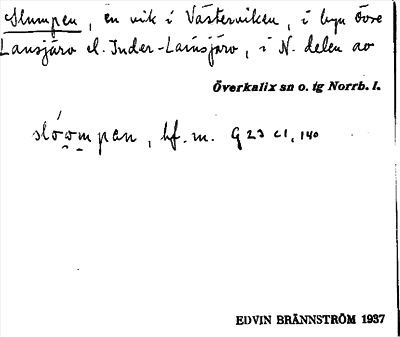 Slumpen, en vik i Västerviken, i byn Övre
Lansjärv el. Inder-Lansjärv, i N. delen av
Överkalix sn o. tg Norrb. l.
slówmpan, hf. m. G 23 c1, 140
EDVIN BRÄNNSTRÖM 1937